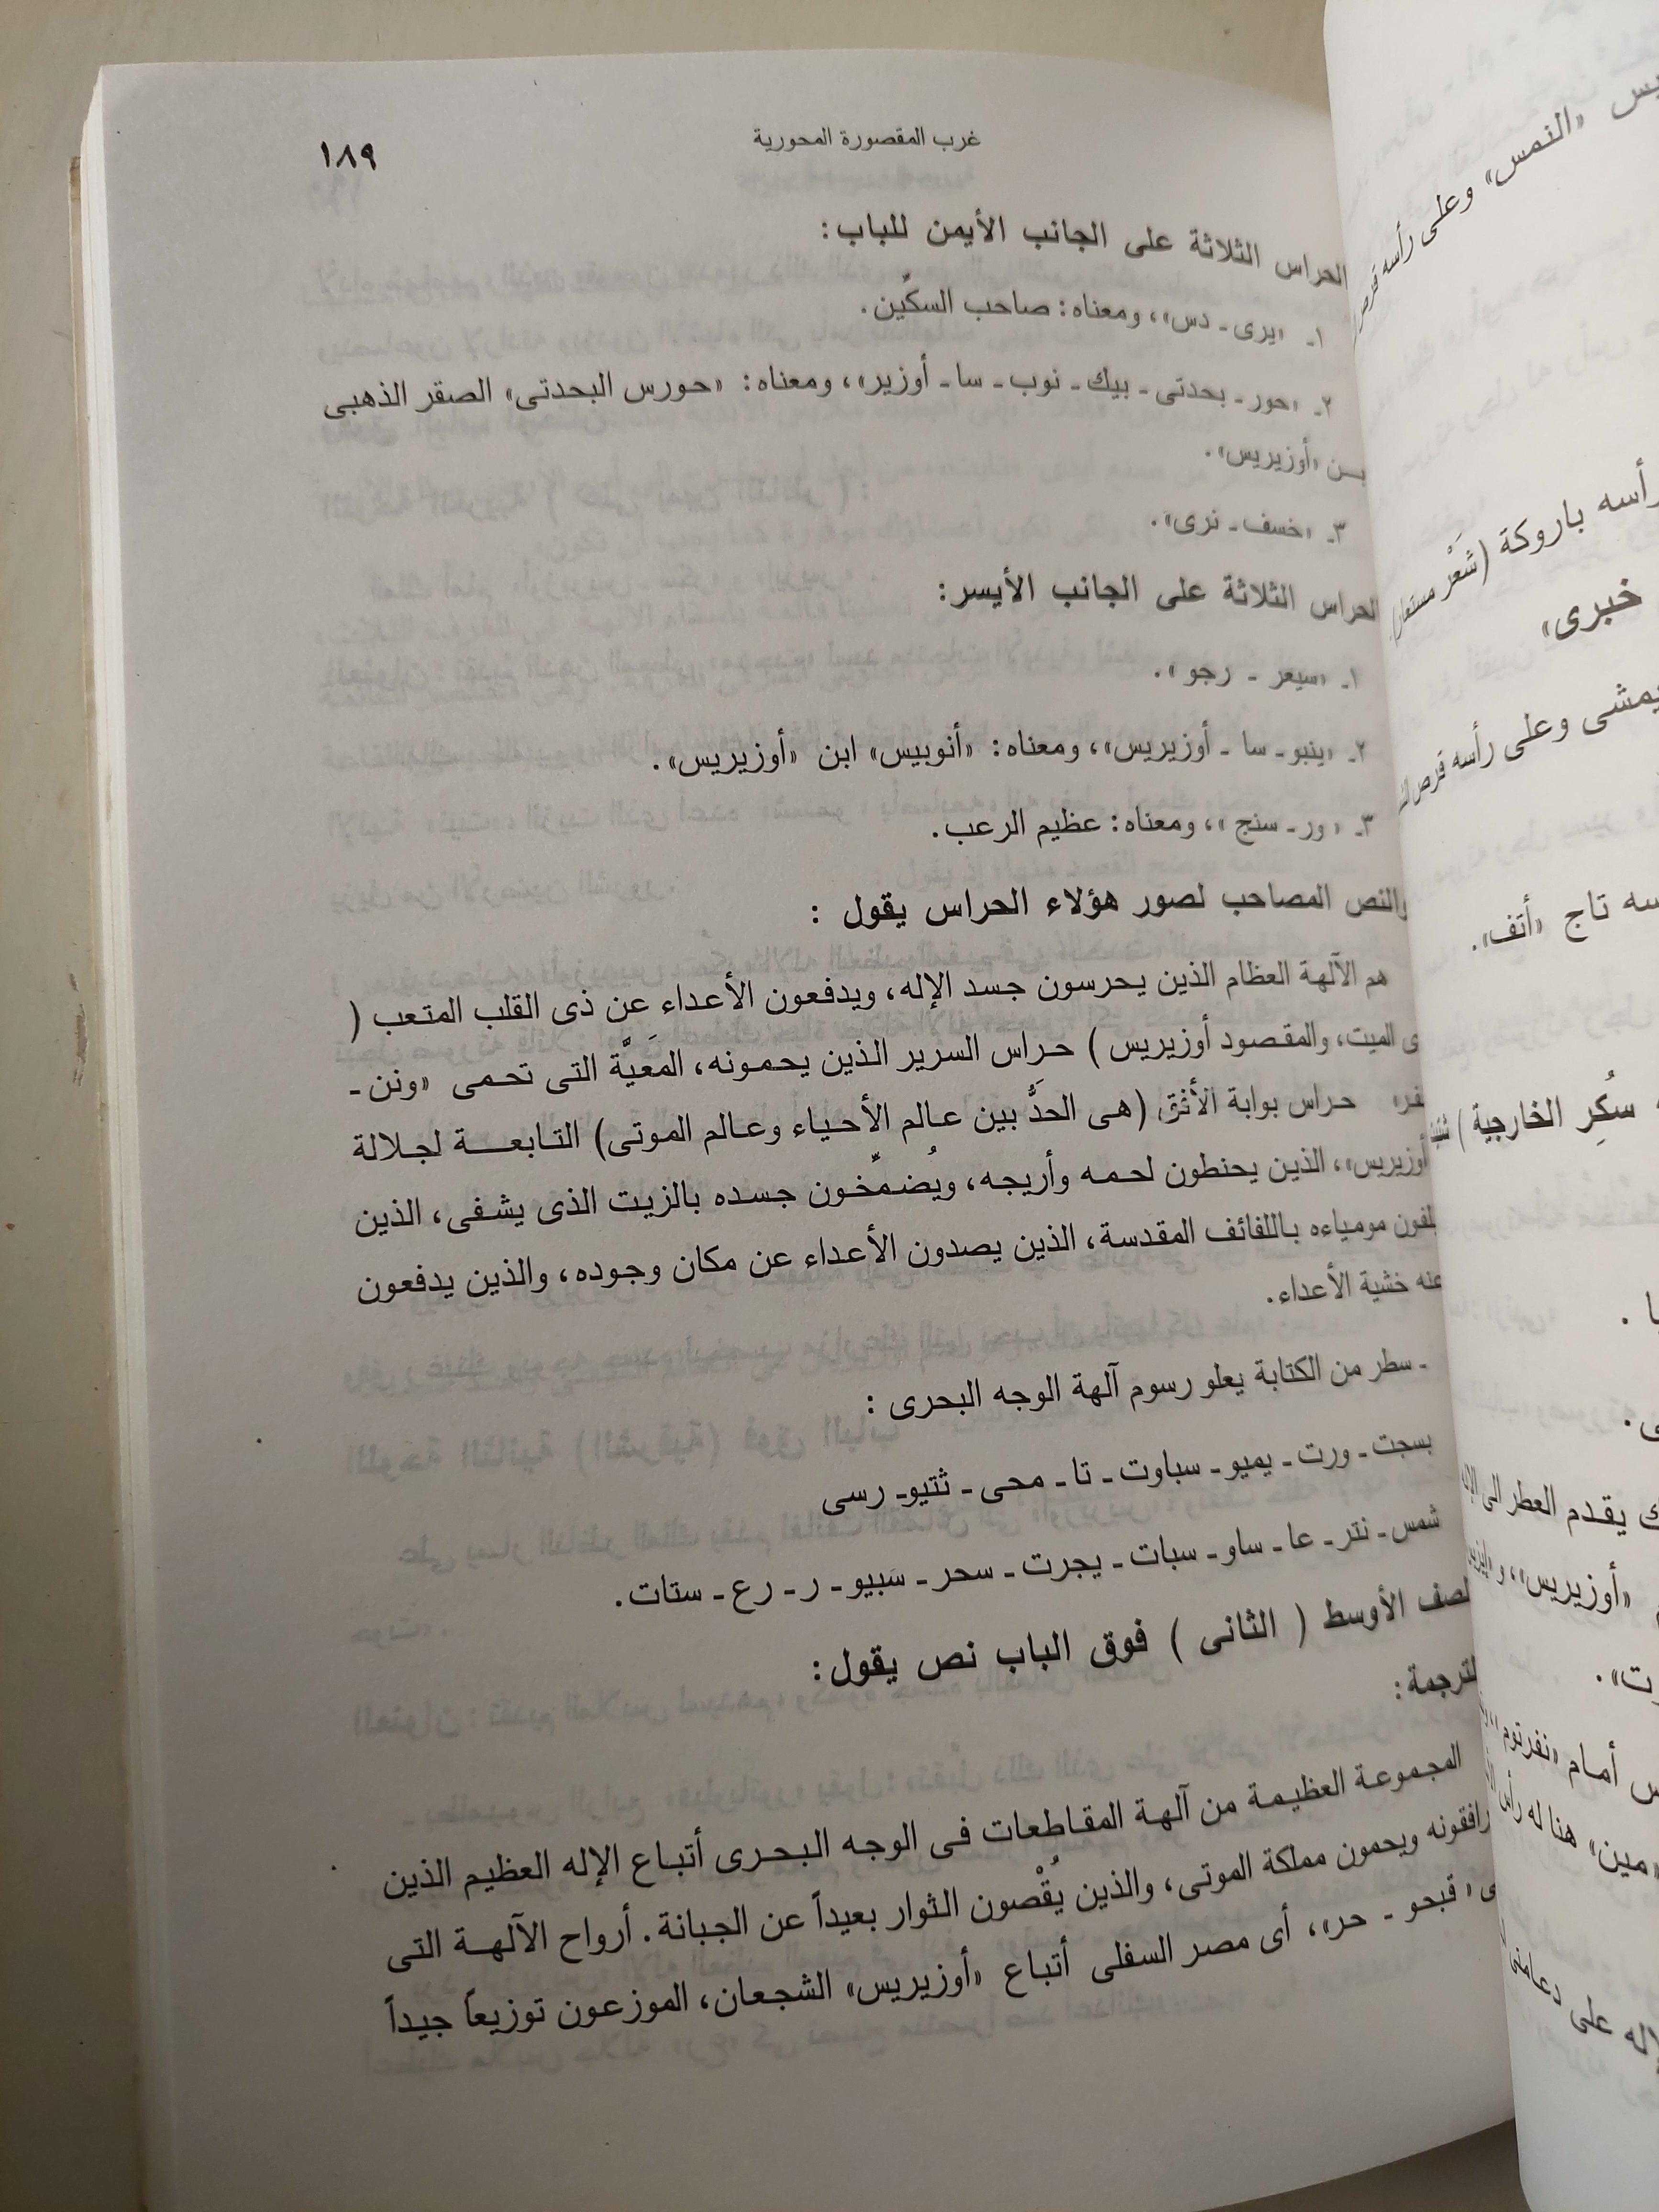 غرب المقصورة المحورية
١٨٩
الحراس الثلاثة على الجانب الأيمن للباب:
١ـ «يرى ـ دس»، ومعناه: صاحب السكّين.
٢ـ «حور ـ بحدتى ـ بيك ـ نوب ـ سا ـ أوزير»، ومعناه: «حورس البحدتى» الصقر الذهبى
بـن «أوزيريس».
٣ـ «خسف ـ نرى».
الحراس الثلاثة على الجانب الأيسر:
١ـ «سيعر ـ رجو».
٢ـ «ينبو ـ سا ـ أوزيريس»، ومعناه: «أنوبيس» ابن «أوزيريس».
٣ـ «ور ـ سنج»، ومعناه: عظيم الرعب.
والنص المصاحب لصور هؤلاء الحراس يقول :
هم الآلهة العظام الذين يحرسون جسد الإله، ويدفعون الأعداء عن ذى القلب المتعب (
ى الميت، والمقصود أوزيريس ) حراس السرير الذين يحمونه، المَعَيَّة التى تحمى «ونن ـ
نفر» حراس بوابة الأفق (هى الحدَّ بين عالم الأحياء وعالم الموتى) التابعة لجلالة
أوزيريس»، الذين يحنطون لحمه وأريجه، ويُضمِّخون جسده بالزيت الذى يشفى، الذين
يلفون مومياءه باللفائف المقدسة، الذين يصدون الأعداء عن مكان وجوده، والذين يدفعون
عنه خشية الأعداء.
ـ سطر من الكتابة يعلو رسوم آلهة الوجه البحرى :
بسجت ـ ورت ـ يميو ـ سباوت ـ تا ـ محى ـ ثتيو ـ رسى
شمس ـ نتر ـ عا ـ ساو ـ سبات ـ يجرت ـ سحر ـ سَبيو ـ ر ـ رع ـ ستات.
لصف الأوسط ( الثانى ) فوق الباب نص يقول:
لترجمة:
المجموعة العظيمة من آلهة المقاطعات فى الوجه البحرى أتباع الإله العظيم الذين
رافقونه ويحمون مملكة الموتى، والذين يُقْصون الثوار بعيداً عن الجبانة. أرواح الآلهة التى
ى «قبحو ـ حر»، أى مصر السفلى أتباع «أوزيريس» الشجعان، الموزعون توزيعاً جيداً
يس «النمس» وعلى رأسه قرص
رأسه باروكة (شَعْر مستعار)
خبرى»
يمشى وعلى رأسه قرص
سه تاج «أتف».
سكُرِ الخارجية )
ك يقدم العطر الى
«أوزيريس»، و
رت».
س أمام «نفرتوم»
«مين» هنا له رأس
لإله على دعامتى